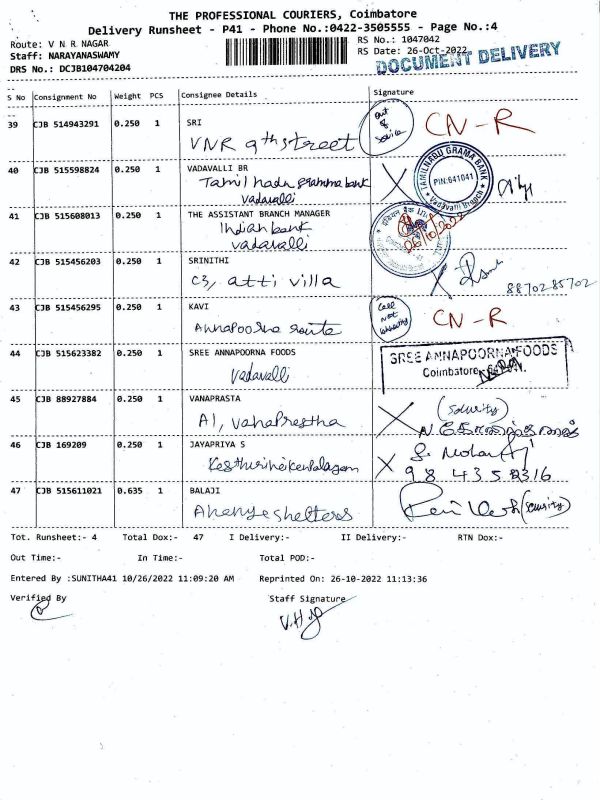 THE PROFESSIONAL COURIERS, Coimbatore
Delivery Runsheet - P41 - Phone No.:0422-3505555 - Page No.:4
Route: V N R NAGAR
RS No.: 1047042
Staff: NARAYANASWAMY
RS Date: 26-Oct-2022
DRS No.: DCJB104704204
DOCUMENT DELIVERY
S No Consignment No Weight PCS Consignee Details Signature
39 CJB 514943291 0.250 1 SRI
VNR 9th street
out of service
CN-R
40 CJB 515598824 0.250 1 VADAVALLI BR
Tamil nadu gramma bank
vadavalli
TAMILNADU GRAMA BANK
PIN:641041
Vadavalli Branch
41 CJB 515608013 0.250 1 THE ASSISTANT BRANCH MANAGER
Indian bank
vadavalli
26/10/2022
42 CJB 515456203 0.250 1 SRINITHI
C3, atti villa
8870285702
43 CJB 515456295 0.250 1 KAVI
Annapoorna route
Call not
CN-R
44 CJB 515623382 0.250 1 SREE ANNAPOORNA FOODS
Vadavalli
SREE ANNAPOORNA FOODS
Coimbatore
45 CJB 88927884 0.250 1 VANAPRASTA
A1, vanaPrastha
(security)
46 CJB 169209 0.250 1 JAYAPRIYA S
47 CJB 515611021 0.635 1 BALAJI
Ananya shelters
(security)
Tot. Runsheet:- 4 Total Dox:- 47 I Delivery:- II Delivery:- RTN Dox:-
Out Time:- In Time:- Total POD:-
Entered By :SUNITHA41 10/26/2022 11:09:20 AM Reprinted On: 26-10-2022 11:13:36
Verified By Staff Signature